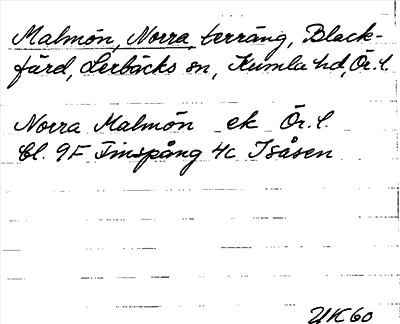 Malmön, Norra, terräng, Black-
färd, Lerbäcks sn, Kumla hd, Ör. l.
Norra Malmön ek Ör. l.
bl. 9F Finspång 4c Isåsen
UK 60